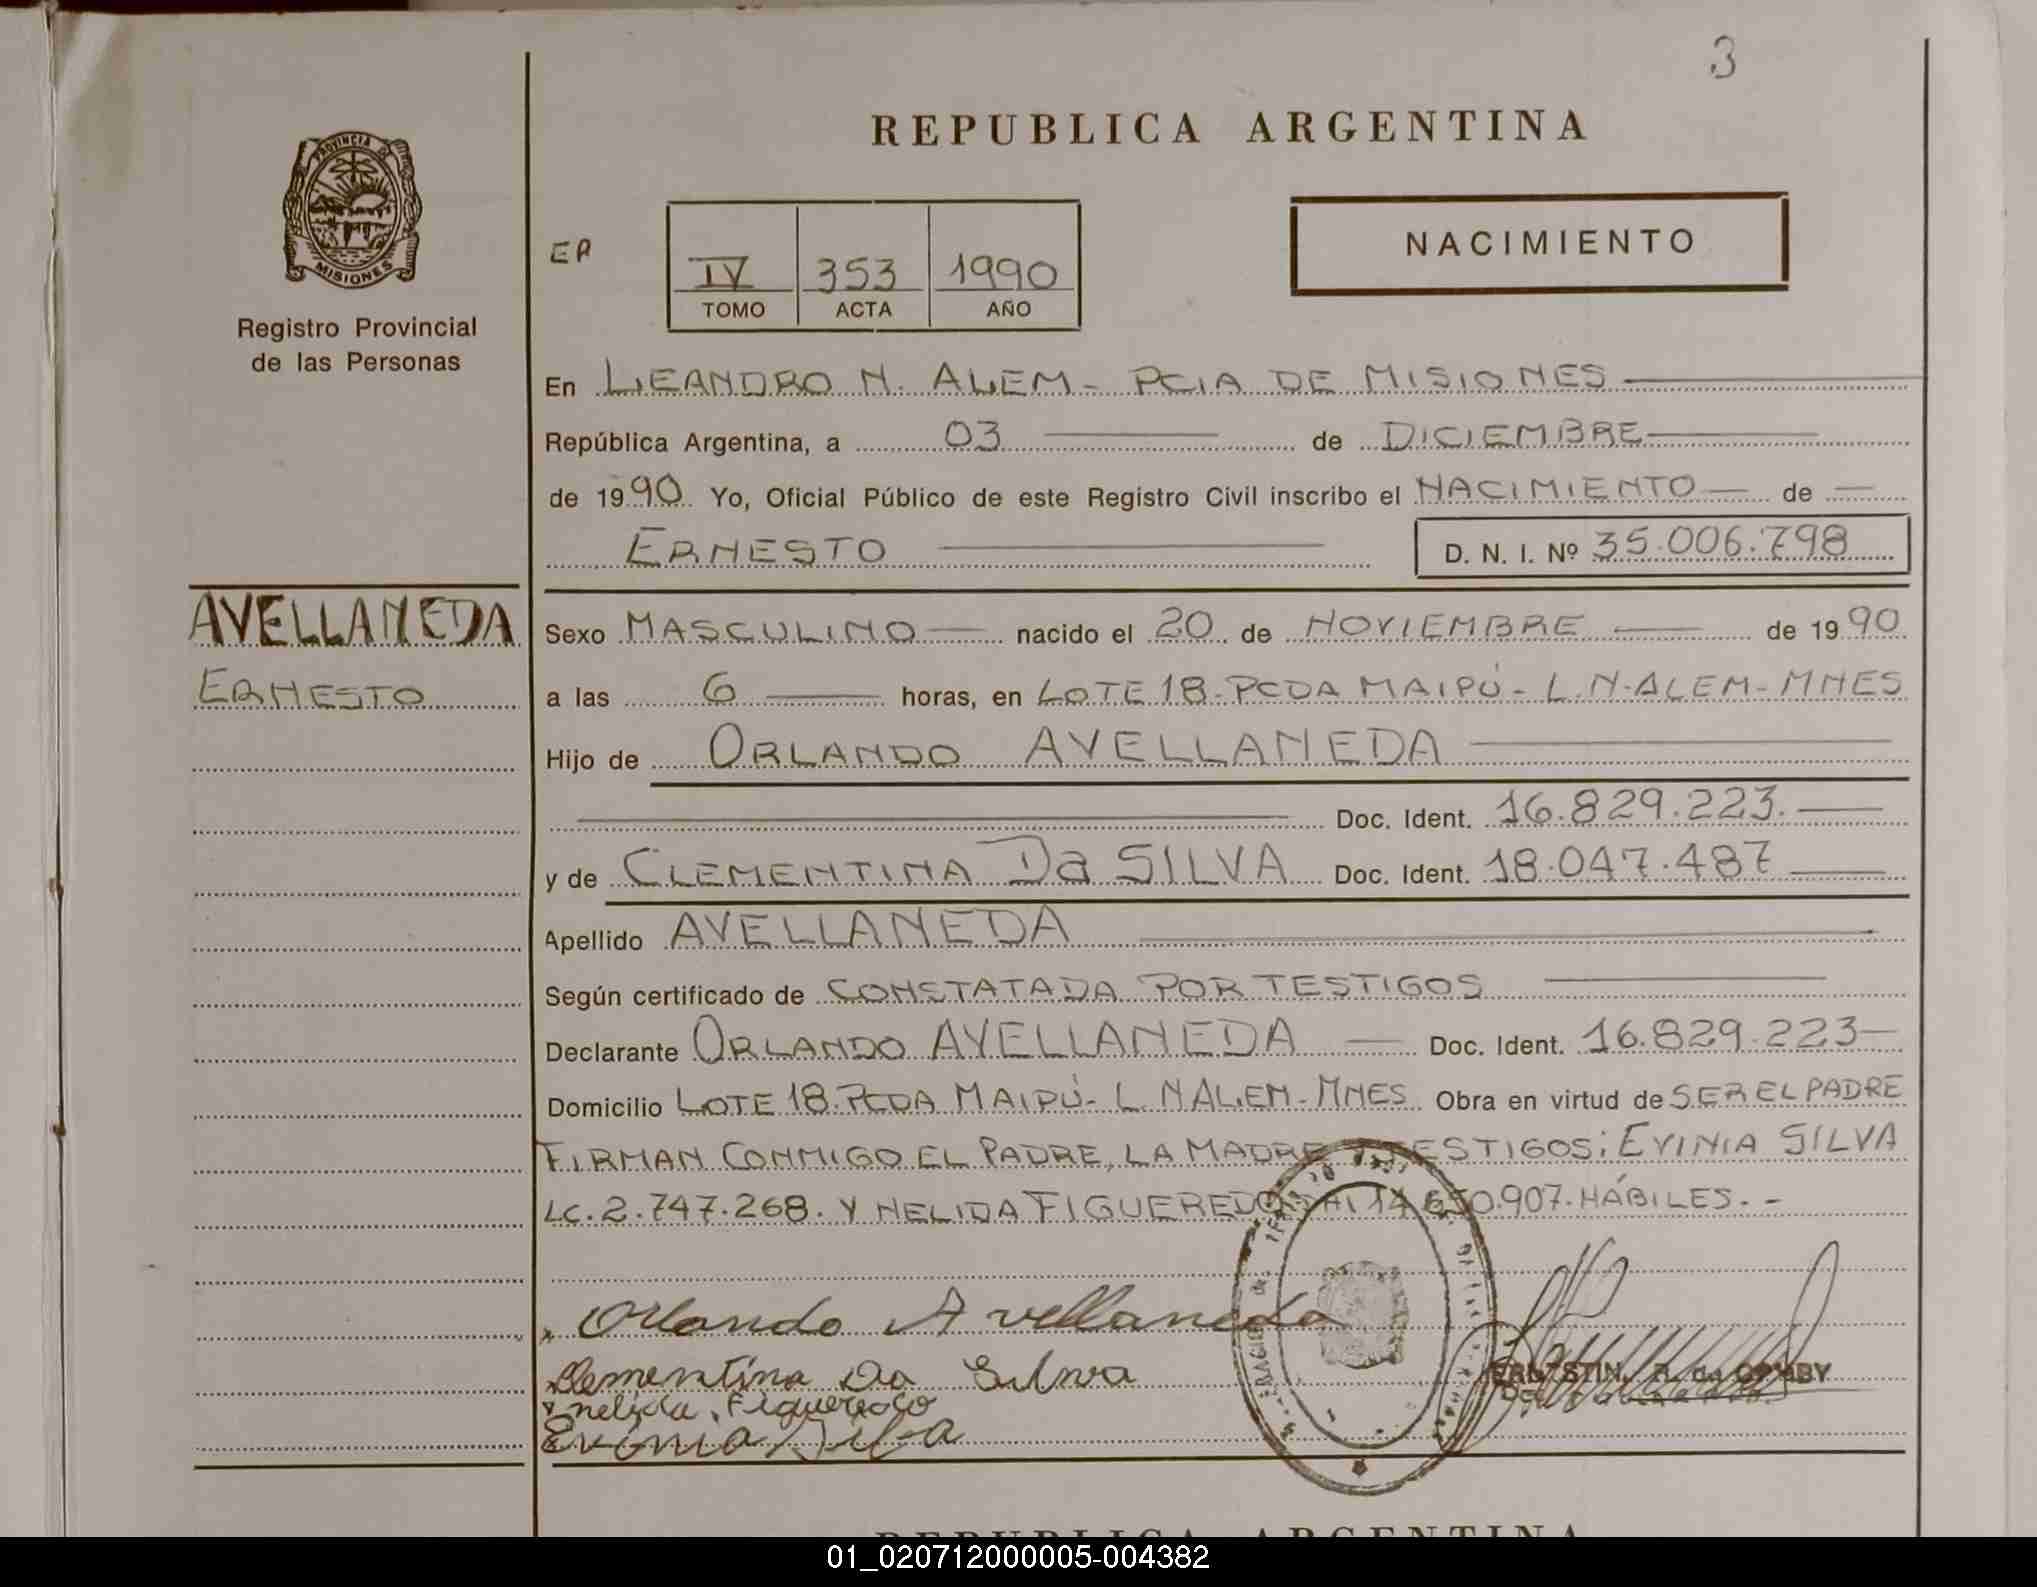 3
REPUBLICA ARGENTINA
PROVINCIA DE
MISIONES
Registro Provincial
de las Personas
ER
IV 353 1990
TOMO ACTA AÑO
NACIMIENTO
En LEANDRO N. ALEM - PCIA DE MISIONES
República Argentina, a 03 de DICIEMBRE
de 1990 Yo, Oficial Público de este Registro Civil inscribo el NACIMIENTO de
ERNESTO D. N. I. Nº 35.006.798
AVELLANEDA
ERNESTO
Sexo MASCULINO nacido el 20 de NOVIEMBRE de 1990
a las 6 horas, en LOTE 18 - PCDA MAIPÚ - L. N. ALEM - MNES
Hijo de ORLANDO AVELLANEDA
Doc. Ident. 16.829.223.
y de CLEMENTINA Da SILVA Doc. Ident. 18.047.487
Apellido AVELLANEDA
Según certificado de CONSTATADA POR TESTIGOS
Declarante ORLANDO AVELLANEDA Doc. Ident. 16.829.223
Domicilio LOTE 18. PCDA MAIPÚ - L. N ALEM - MNES Obra en virtud de SER EL PADRE
FIRMAN CONMIGO EL PADRE, LA MADRE TESTIGOS: EVINIA SILVA
LC. 2.747.268. Y NELIDA FIGUEREDO DNI 14.650.907. HÁBILES. -
Orlando Avellaneda
Clementina Da Silva
nelida Figueredo
Evinia Silva
REPUBLICA ARGENTINA
01_020712000005-004382